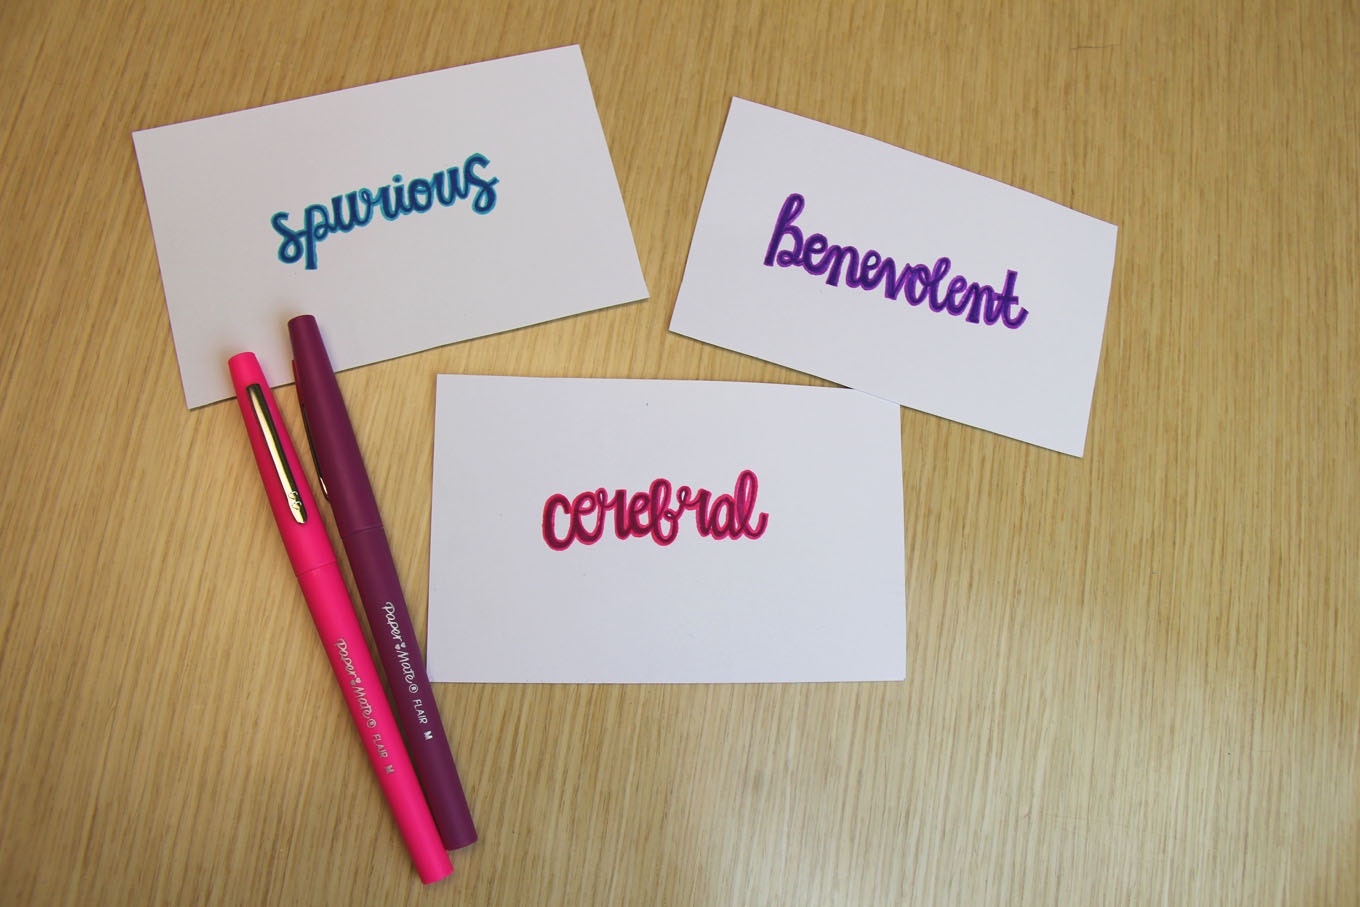 spurious
benevolent
cerebral
Paper Mate® FLAIR M
Paper Mate® FLAIR M